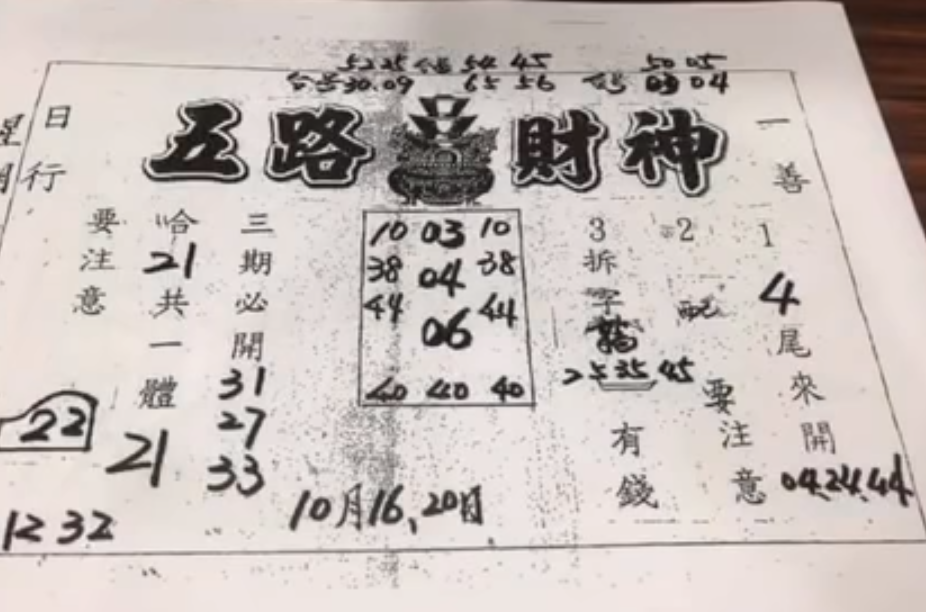 52 25 合 54 45 50 05
合 30.09 65 56 合 03 04
五路財神
日行一善
星期
1 4尾來開 04.24.44
2 配 要注意
3 拆字 25 35 45 有錢
10 03 10
38 04 38
44 06 44
40 40 40
三期必開 31 27 33
哈 21 共一體 21
要注意
22
12 32
10月16,20日